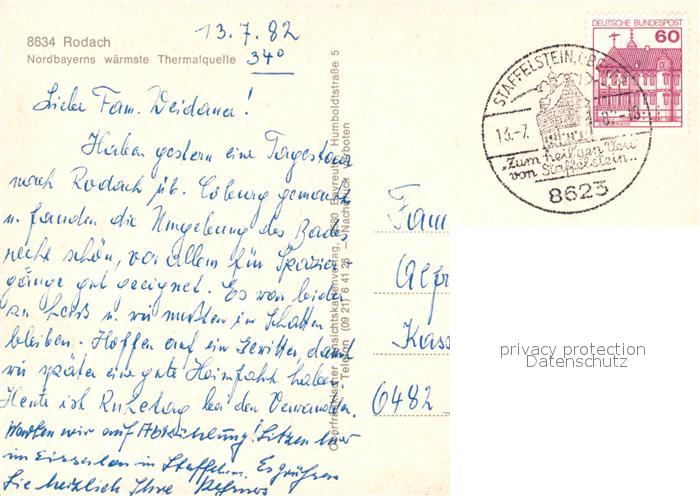 13.7.82
8634 Rodach
Nordbayerns wärmste Thermalquelle 34°
Liebe Fam.
Haben gestern eine Tagestour
nach Rodach üb. Coburg gemacht
u. fanden die Umgebung des Bades
recht schön, vor allem für Spazier-
gänge gut geeignet. Es war leider
zu heiß u. wir mußten im Schatten
bleiben. Hoffen auf ein Gewitter, damit
wir später eine gute Heimfahrt haben.
Heute ist Ruhetag bei den Verwandten.
Warten wir auf Abkühlung! Sitzen hier
im Eissalon in Staffelst. Es grüßen
Sie herzlich Ihre
Oberfränkischer Ansichtskartenverlag, 8580 Bayreuth, Humboldtstraße 5
Telefon (09 21) 6 41 26 - Nachdruck verboten
DEUTSCHE BUNDESPOST
60
STAFFELSTEIN,
13.-7. 82-18
"Zum heil'gen Veit
von Staffelstein..
8623
Fam
Kass
6482
privacy protection
Datenschutz